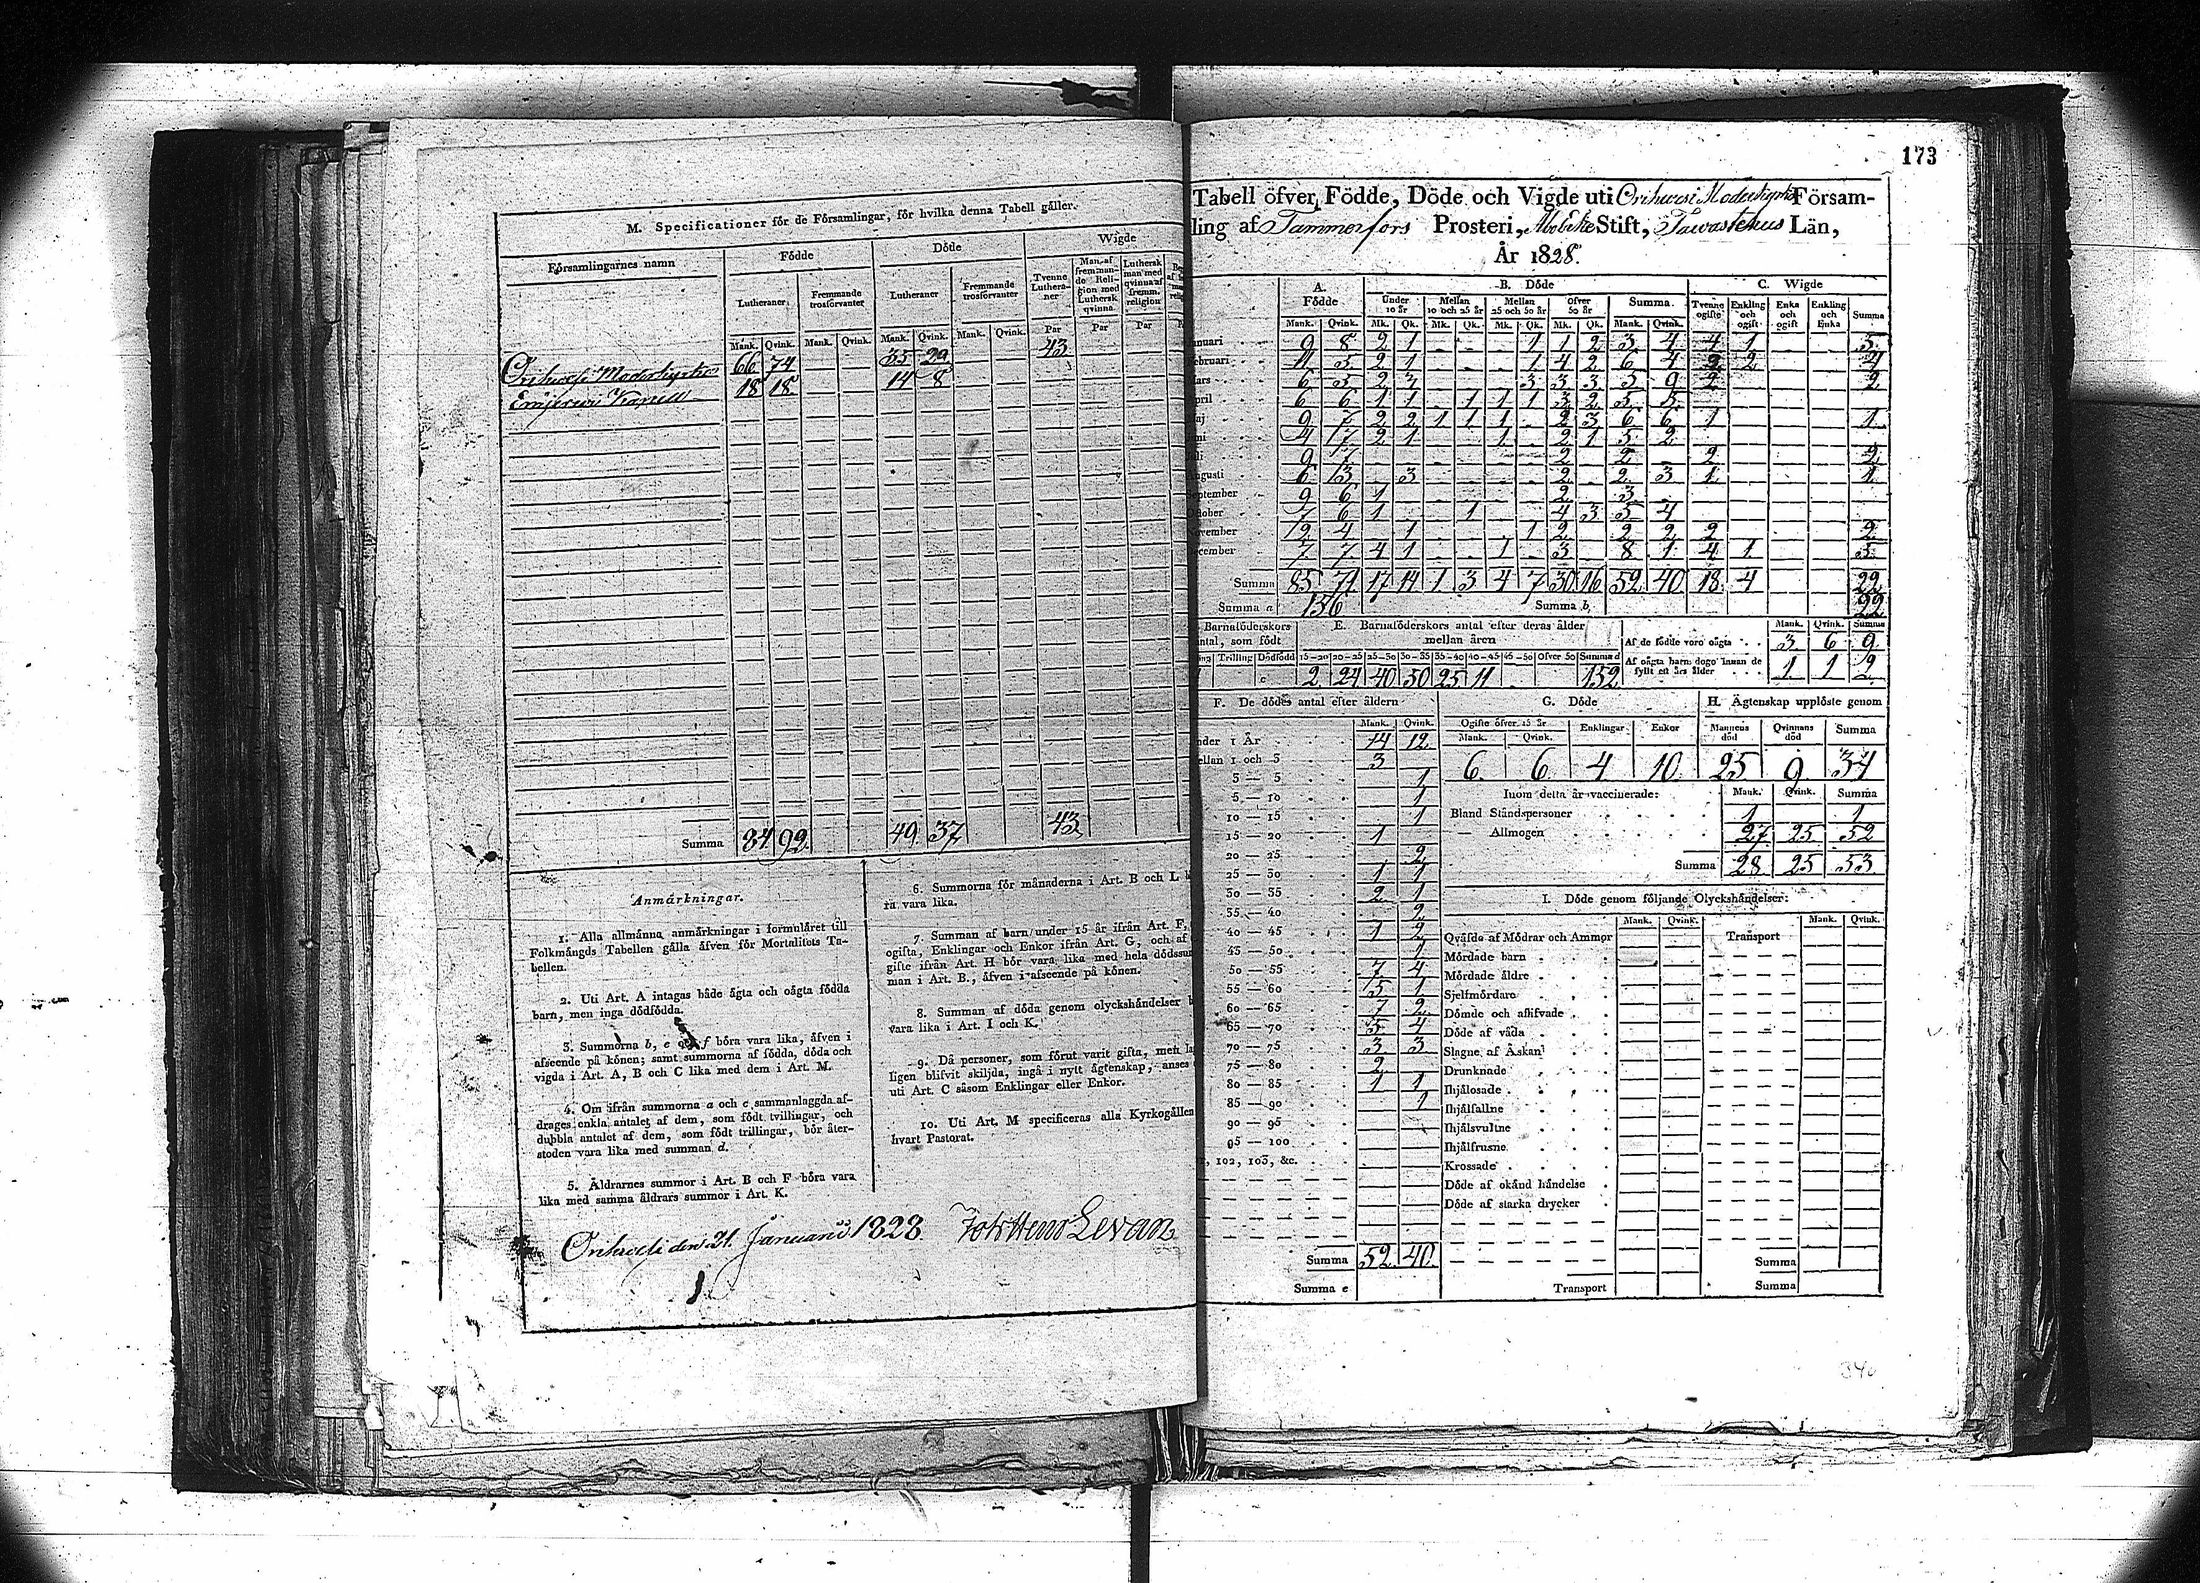 M. Specificationer för de Församlingar, för hvilka denna Tabell gäller.
Församlingarnes namn Födde Döde Wigde
Lutheraner Fremmande trosförvanter Lutheraner Fremmande trosförvanter Tvenne Lutheraner Man af fremmande Religion med Luthersk qvinna Luthersk man med qvinna af fremm. religion
Mank. Qvink. Mank. Qvink. Mank. Qvink. Mank. Qvink. Par Par Par
Orihvesi Moderkyrka 66 74 35 29 43
Eräjervi Kapell 18 18 14 8
Summa 84 92 49 37 43
Anmärkningar.
1. Alla allmänna anmärkningar i formuläret till
Folkmängds Tabellen gälla äfven för Mortalitets Ta-
bellen.
2. Uti Art. A intagas både ägta och oägta födda
barn, men inga dödfödda.
3. Summorna b, e och f böra vara lika, äfven i
afseende på könen; samt summorna af födda, döda och
vigda i Art. A, B och C lika med dem i Art. M.
4. Om ifrån summorna a och c sammanlaggda af-
drages enkla antalet af dem, som födt tvillingar, och
dubbla antalet af dem, som födt trillingar, bör åter-
stoden vara lika med summan d.
5. Åldrarnes summor i Art. B och F böra vara
lika med samma åldrars summor i Art. K.
6. Summorna för månaderna i Art. B och L
ra vara lika.
7. Summan af barn under 15 år ifrån Art. F,
ogifta, Enklingar och Enkor ifrån Art. G, och af
gifte ifrån Art. H bör vara lika med hela dödssum
man i Art. B., äfven i afseende på könen.
8. Summan af döda genom olyckshändelser
vara lika i Art. I och K.
9. Då personer, som förut varit gifta, men
ligen blifvit skiljda, ingå i nytt ägtenskap, anses
uti Art. C såsom Enklingar eller Enkor.
10. Uti Art. M specificeras alla Kyrkogällen
hvart Pastorat.
Orihvesi den 21. Januarii 1828
173
Tabell öfver Födde, Döde och Vigde uti Orihvesi Moderkyrko Försam-
ling af Tammerfors Prosteri, Åbo Erke Stift, Tawastehus Län,
År 1828.
A. Födde B. Döde C. Wigde
Under 10 år Mellan 10 och 25 år Mellan 25 och 50 år Öfver 50 år Summa. Tvenne ogifte Enkling och ogift Enka och ogift Enkling och Enka Summa
Mank. Qvink. Mk. Qk. Mk. Qk. Mk. Qk. Mk. Qk. Mank. Qvink.
anuari 9 8 2 1 1 1 2 3 4 4 1 5
ebruari 11 5 2 1 1 4 2 6 4 2 2 4
ars 6 5 2 3 3 3 3 5 9 2 2
pril 6 6 1 1 1 1 1 3 2 5 5
aj 9 7 2 2 1 1 1 2 3 6 6 1 1
ni 4 17 2 1 1 2 1 5 2
li 9 7 2 2 2 2
ugusti 6 13 3 2 2 3 1 1
eptember 9 6 1 2 3
ktober 7 6 1 1 4 3 5 4
ovember 12 4 1 1 2 2 2 2 2
ecember 7 7 4 1 1 3 8 1 4 1 5
Summa 85 71 17 14 1 3 4 7 30 16 52 40 18 4 22
Summa a 156 Summa b, 22
Barnaföderskors E. Barnaföderskors antal efter deras ålder Mank. Qvink. Summa
ntal, som födt mellan åren Af de födde voro oägta 3 6 9
Trilling Dödfödd 15-20 20-25 25-30 30-35 35-40 40-45 45-50 Öfver 50 Summa d
Af oägta barn dogo innan de fyllt ett års ålder 1 1 2
2 24 40 50 25 11 152
F. De dödes antal efter åldern G. Döde H. Ägtenskap upplöste genom
Mank. Qvink. Ogifte öfver 15 år Enklingar Enkor Mannens död Qvinnans död Summa
Mank. Qvink.
nder 1 År 14 12
ellan 1 och 3 3 6 6 4 10 25 9 34
3 — 5 1
5 — 10 1 Inom detta år vaccinerade: Mank. Qvink. Summa
10 — 15 1 Bland Ståndspersoner 1 1
15 — 20 1 — Allmogen 27 25 52
20 — 25 2
25 — 30 1 1 Summa 28 25 53
30 — 35 2 1 I. Döde genom följande Olyckshändelser:
35 — 40 2 Mank. Qvink. Mank. Qvink.
40 — 45 1 2 Qväfde af Mödrar och Ammor Transport
45 — 50 1 Mördade barn
50 — 55 7 4 Mördade äldre
55 — 60 5 1 Sjelfmördare
60 — 65 7 2 Dömde och aflifvade
65 — 70 5 4 Döde af våda
70 — 75 3 3 Slagne af Åskan
75 — 80 2 Drunknade
80 — 85 1 1 Ihjälosade
85 — 90 1 Ihjälfallne
90 — 95 Ihjälsvultne
95 — 100 Ihjälfrusne
, 102, 103, &c. Krossade
Döde af okänd händelse
Döde af starka drycker
Summa 52 40 Summa
Summa e Transport Summa